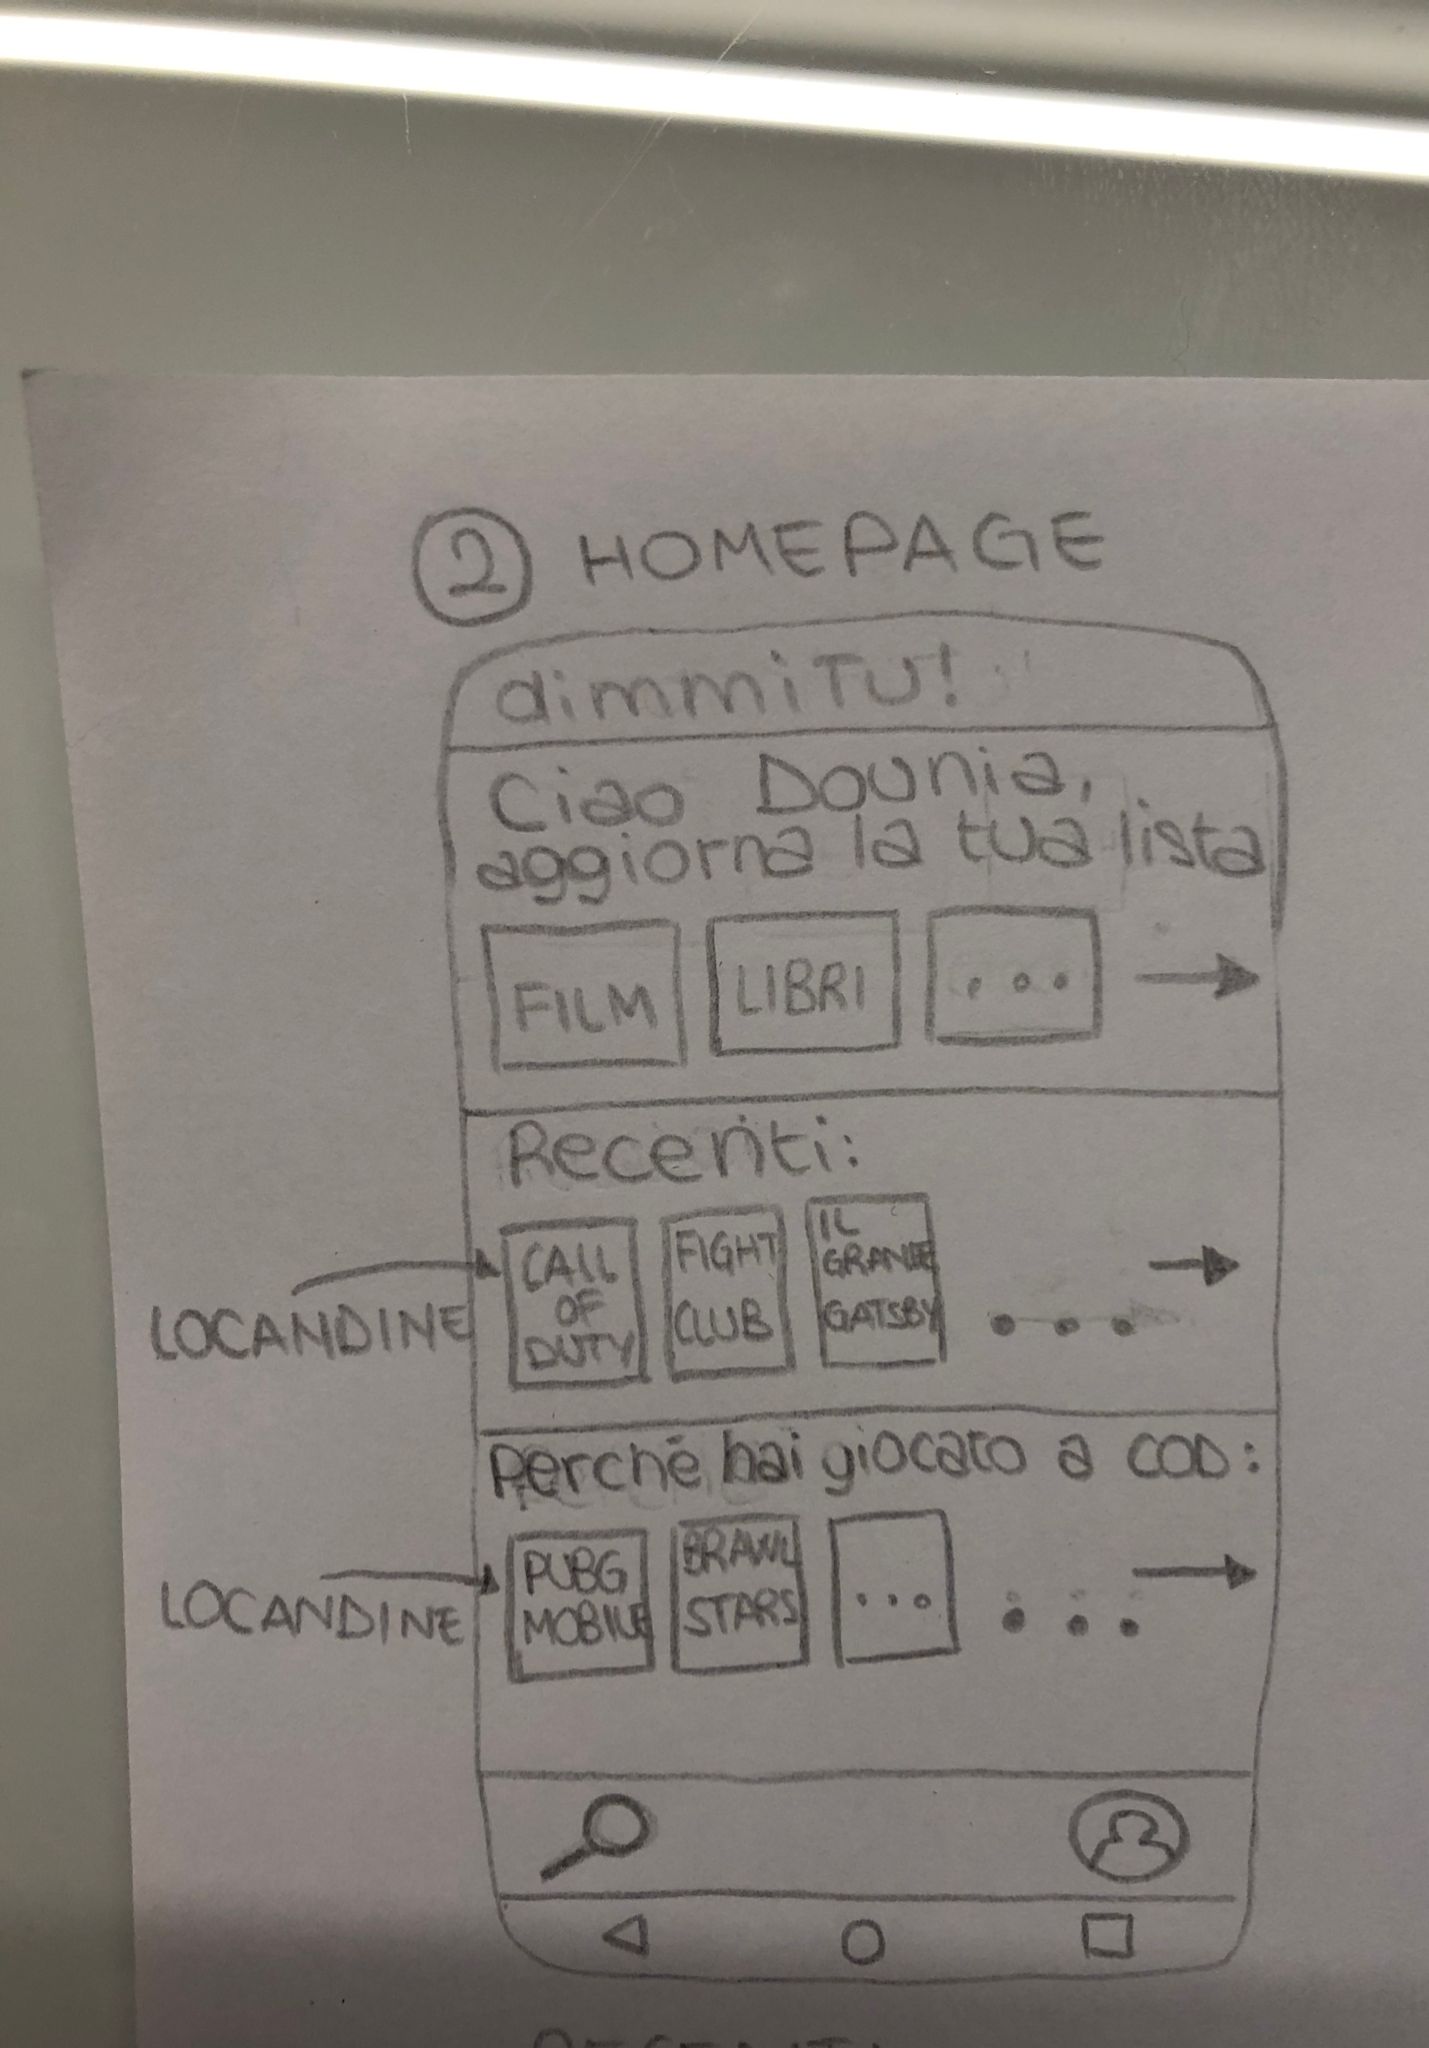 2 HOMEPAGE
dimmiTU!
Ciao Dounia,
aggiorna la tua lista
FILM
LIBRI
...
Recenti:
LOCANDINE
CALL
OF
DUTY
FIGHT
CLUB
IL
GRANDE
GATSBY
...
Perché hai giocato a COD:
LOCANDINE
PUBG
MOBILE
BRAWL
STARS
...
...